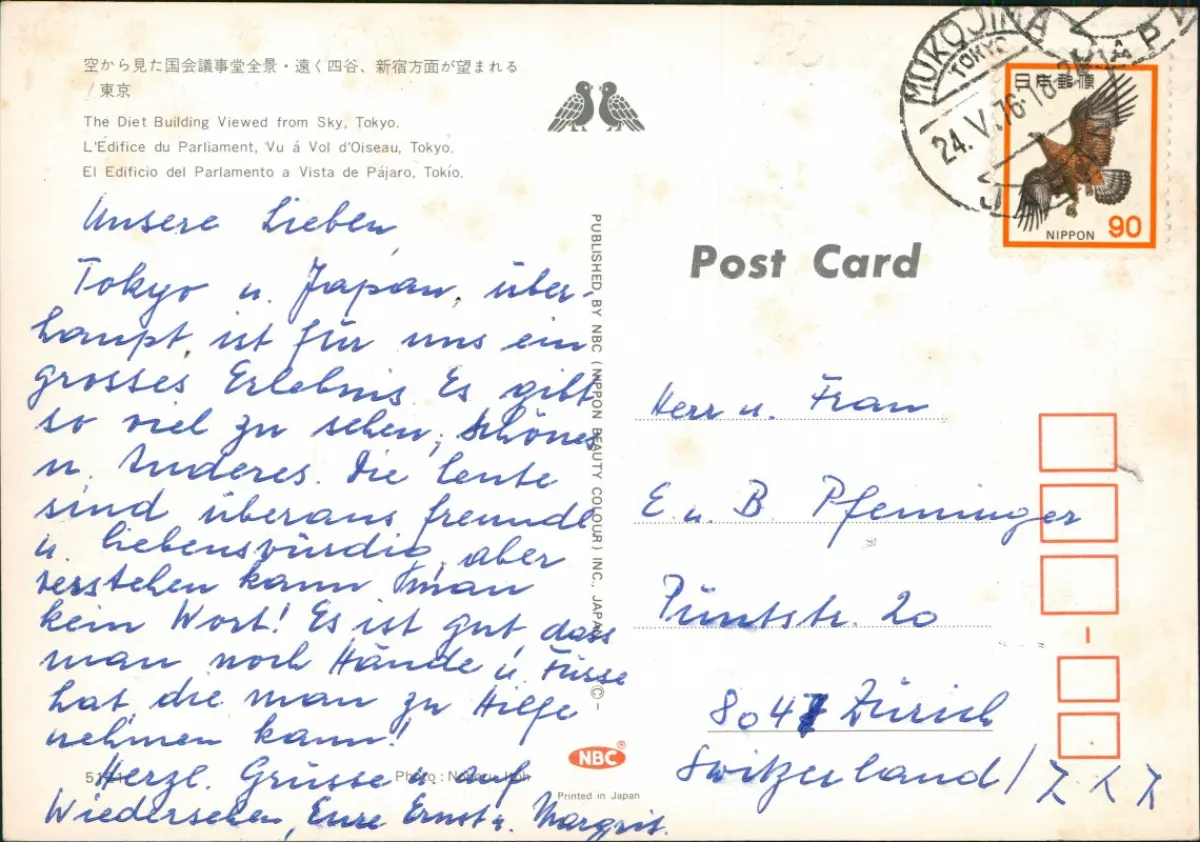 空から見た国会議事堂全景・遠く四谷、新宿方面が望まれる
/東京
The Diet Building Viewed from Sky, Tokyo.
L'Édifice du Parliament, Vu á Vol d'Oiseau, Tokyo.
El Edificio del Parlamento a Vista de Pájaro, Tokío.
Unsere Lieben,
Tokyo u. Japan, über-
haupt, ist für uns ein
grosses Erlebnis. Es gibt
so viel zu sehen, Schönes
u. Anderes. Die Leute
sind überaus freundl
u. liebenswürdig, aber
verstehen kann man
kein Wort! Es ist gut, dass
man noch Hände u. Füsse
hat die man zu Hilfe
nehmen kann!
Herzl. Grüsse u. auf
Wiedersehen, Eure Ernst u. Margrit.
Photo :
PUBLISHED BY NBC (NIPPON BEAUTY COLOUR) INC., JAPAN ©
NBC®
Printed in Japan
MUKOJIMA
TOKYO
24.V.76.
JAPAN
日本郵便
NIPPON 90
Post Card
Herr u. Frau
E. u. B. Pfenninger
Püntstr. 20
8047 Zürich
Switzerland /